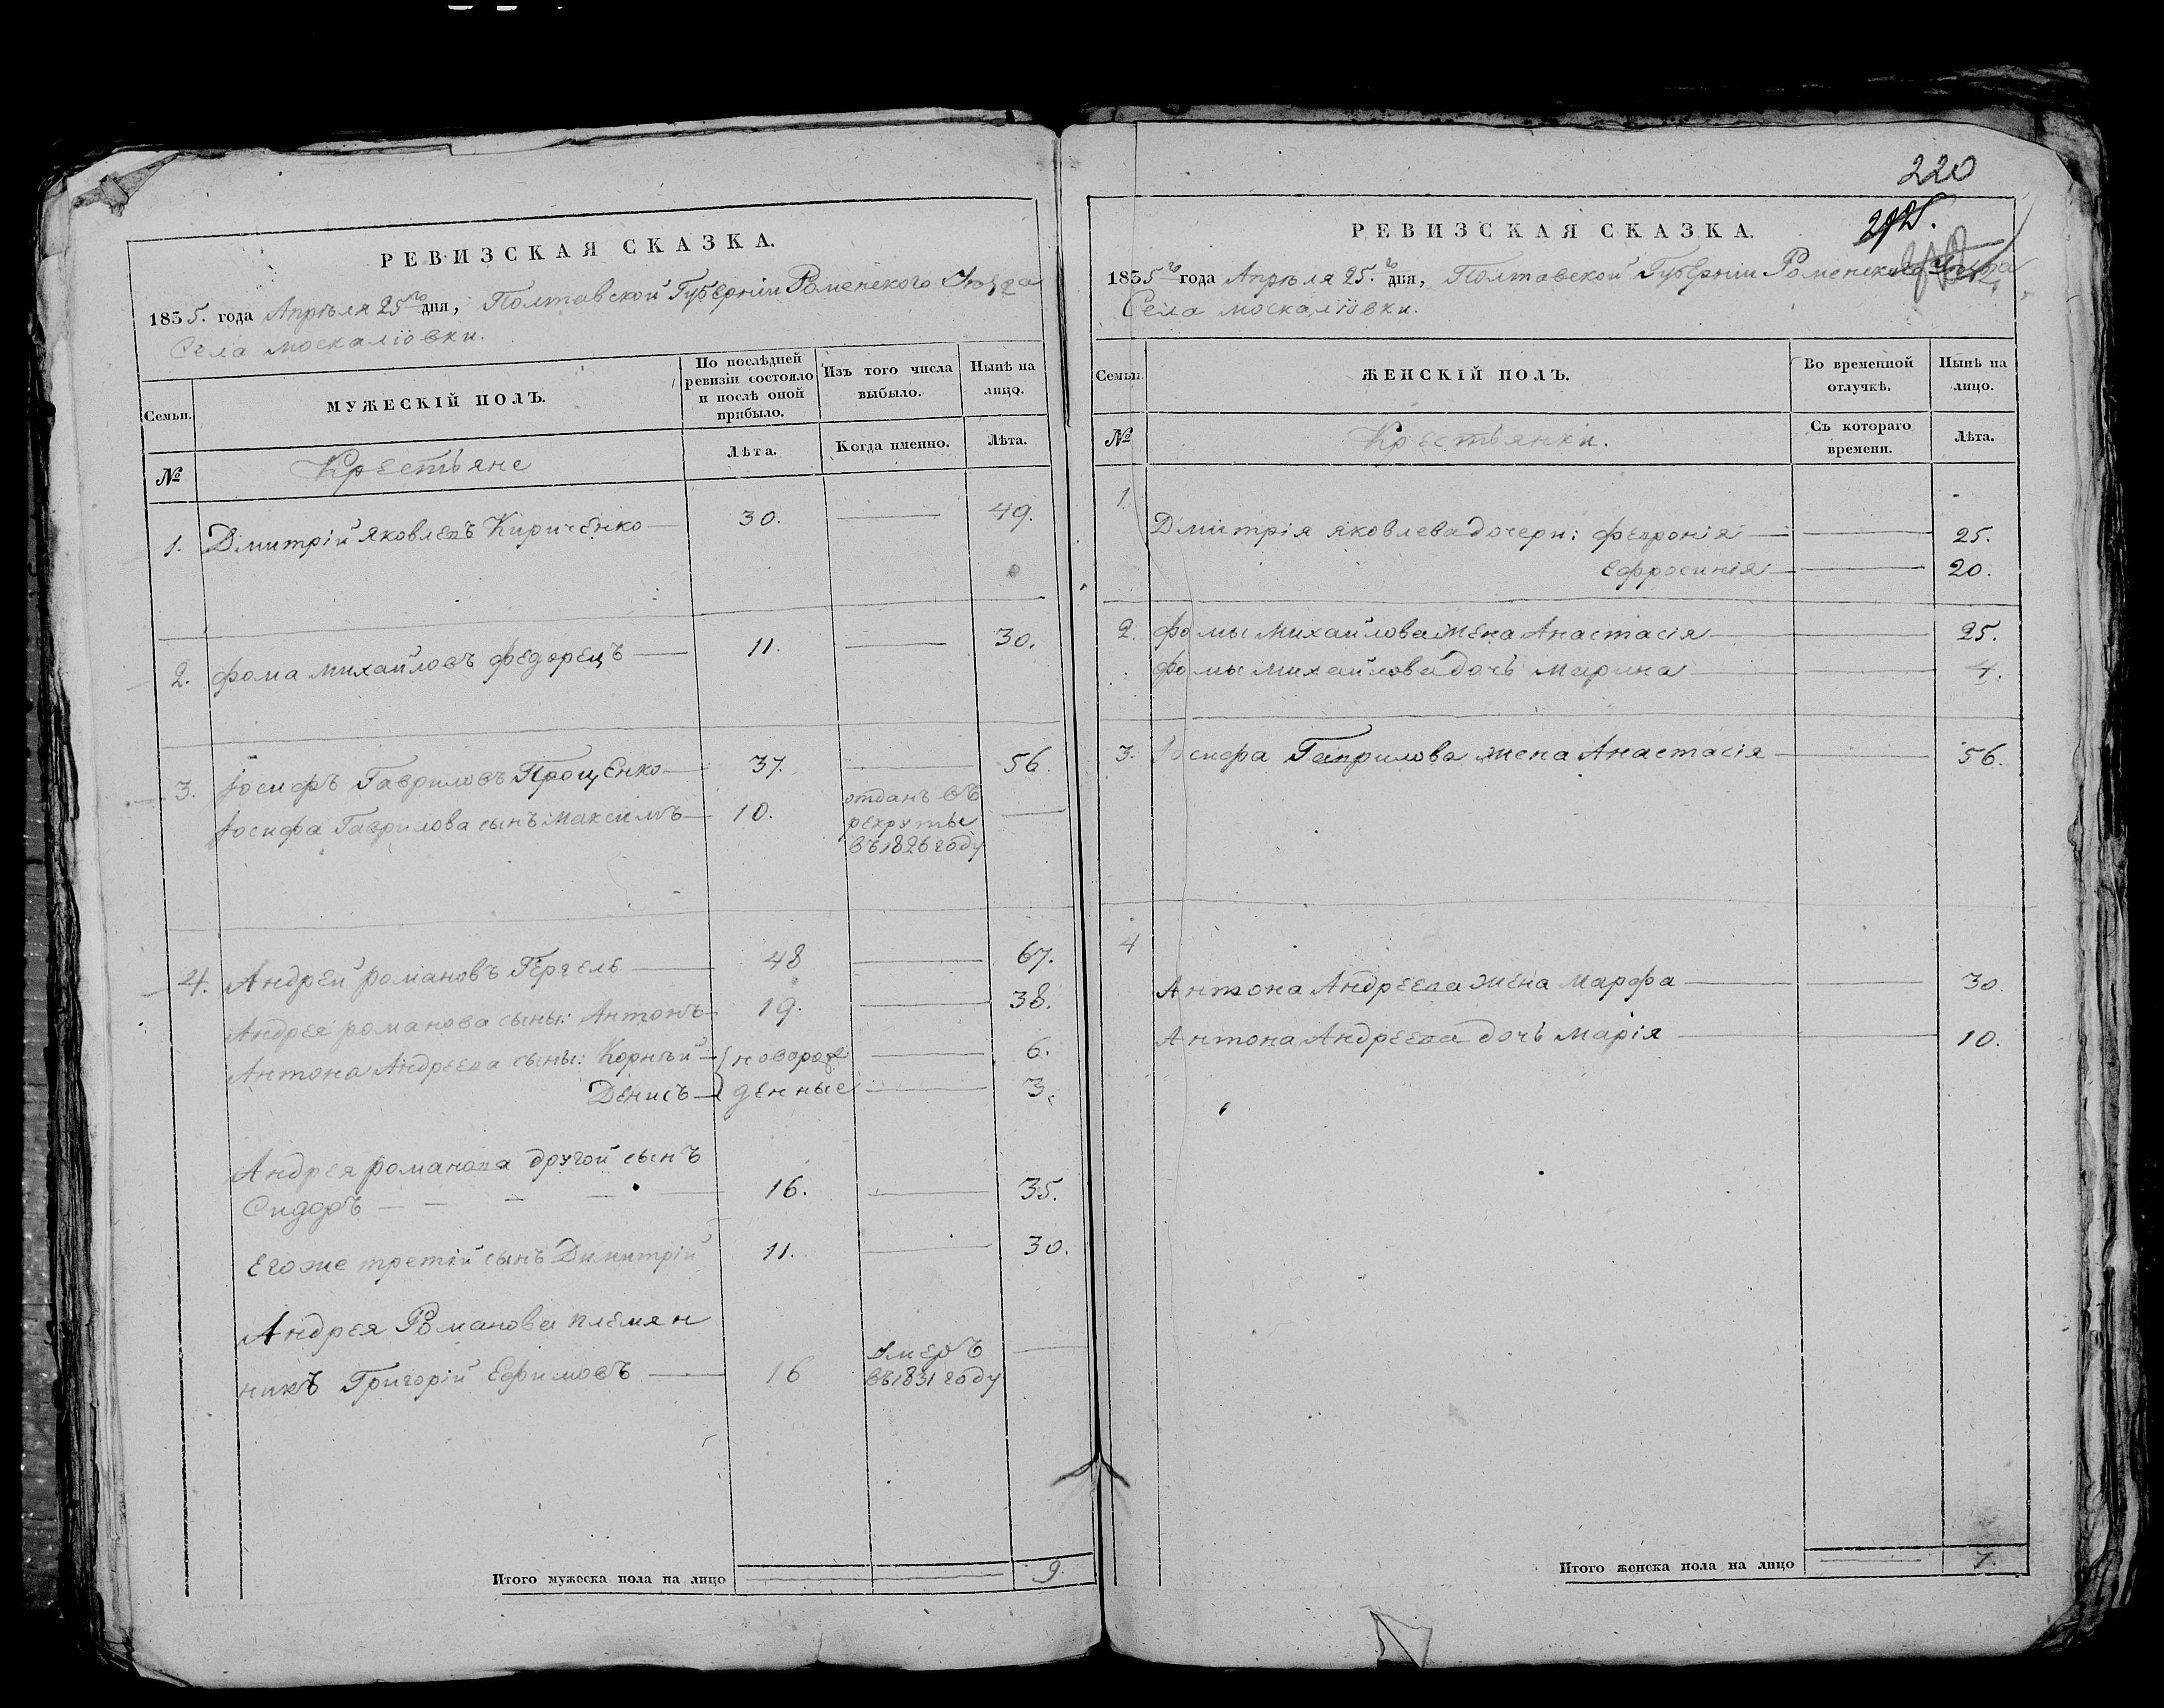 РЕВИЗСКАЯ СКАЗКА.
1835. года Апрѣля 25го дня, Полтавской Губерніи Роменского
Села москаліовки.
Семьи.
МУЖЕСКІЙ ПОЛЪ.
По послѣдней ревизіи состояло и послѣ оной прибыло.
Изъ того числа выбыло.
Нынѣ на лицо.
№
Крестьяне
Лѣта.
Когда именно.
Лѣта.
1. Дмитрій яковлевъ Кириченко 30. 49.
2. фома михайловъ федорецъ 11. 30.
3. Іосифъ Гавриловъ Прощенко 37. 56.
Іосифа Гаврилова сынъ Максимъ 10. отданъ въ
рекруты
въ 1826 году
4. Андрей романовъ Гергель 48 67.
Андрея романова сыны: Антонъ 19. 38.
Антона Андреева сыны: Корнѣй новорож 6.
Денисъ денные 3.
Андрея романова другой сынъ
Сидоръ 16. 35.
Его же третій сынъ Димитрій 11. 30.
Андрея Романова племян
никъ Григорій Ефимовъ 16 умеръ
въ 1831 году
Итого мужеска пола на лицо 9.
220
РЕВИЗСКАЯ СКАЗКА.
1835го года Апрѣля 25.го дня, Полтавской Губерніи
Села москаліовки.
Семьи.
ЖЕНСКІЙ ПОЛЪ.
Во временной отлучкѣ.
Нынѣ на лицо.
№
Крестьянки.
Съ котораго времени.
Лѣта.
1.
Дмитрія яковлева дочери: февронія 25.
Ефросинія 20.
2. фомы михайлова жена Анастасія 25.
фомы михайлова дочь марина 4.
3. Іосифа Гаврилова жена Анастасія 56.
4
Антона Андреева жена марфа 30
Антона Андреева дочь марія 10.
Итого женска пола на лицо 7.